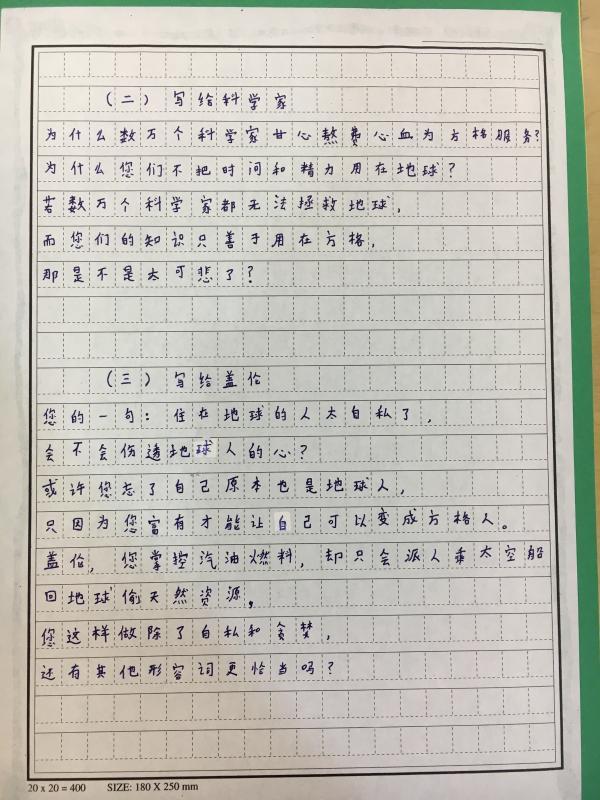 （二）写给科学家
为什么数万个科学家甘心熬费心血为方格服务？
为什么您们不把时间和精力用在地球？
若数万个科学家都无法拯救地球，
而您们的知识只善于用在方格，
那是不是太可悲了？
（三）写给盖伦
您的一句：住在地球的人太自私了，
会不会伤透地球人的心？
或许您忘了自己原本也是地球人，
只因为您富有才能让自己可以变成方格人。
盖伦，您掌控汽油燃料，却只会派人乘太空船
回地球偷天然资源。
您这样做除了自私和贪婪，
还有其他形容词更恰当吗？
20 x 20 = 400 SIZE: 180 X 250 mm